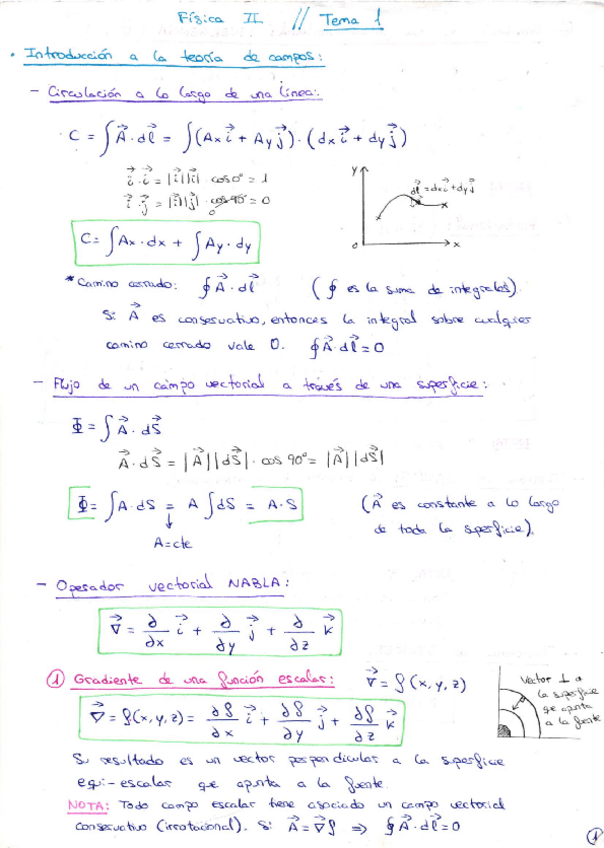 Física II // Tema 1
• Introducción a la teoría de campos:
– Circulación a lo largo de una línea:
C = ∫A⃗·dl⃗ = ∫(Ax i⃗ + Ay j⃗)·(dx i⃗ + dy j⃗)
i⃗·i⃗ = |i⃗||i⃗|·cos0° = 1
i⃗·j⃗ = |i⃗||j⃗|·cos90° = 0
0
y
dl⃗ = dx i⃗ + dy j⃗
0
x
C = ∫Ax·dx + ∫Ay·dy
* Camino cerrado: ∮A⃗·dl⃗ (∮ es la suma de integrales).
Si A⃗ es conservativo, entonces la integral sobre cualquier
camino cerrado vale 0. ∮A⃗·dl⃗ = 0
– Flujo de un campo vectorial a través de una superficie:
Φ = ∫A⃗·dS⃗
A⃗·dS⃗ = |A⃗||dS⃗|·cos 90° = |A⃗||dS⃗|
Φ = ∫A·dS = A∫dS = A·S (A⃗ es constante a lo largo
de toda la superficie).
↓
A=cte
– Operador vectorial NABLA:
∇⃗ = ∂/∂x i⃗ + ∂/∂y j⃗ + ∂/∂z k⃗
① Gradiente de una función escalar: ∇⃗ = f(x,y,z)
Vector ⊥ a
la superficie
que apunta
a la fuente
∇⃗ = f(x,y,z) = ∂f/∂x i⃗ + ∂f/∂y j⃗ + ∂f/∂z k⃗
Su resultado es un vector perpendicular a la superficie
equi-escalar que apunta a la fuente.
NOTA: Todo campo escalar tiene asociado un campo vectorial
conservativo (irrotacional). Si A⃗ = ∇⃗f ⇒ ∮A⃗·dl⃗ = 0
①